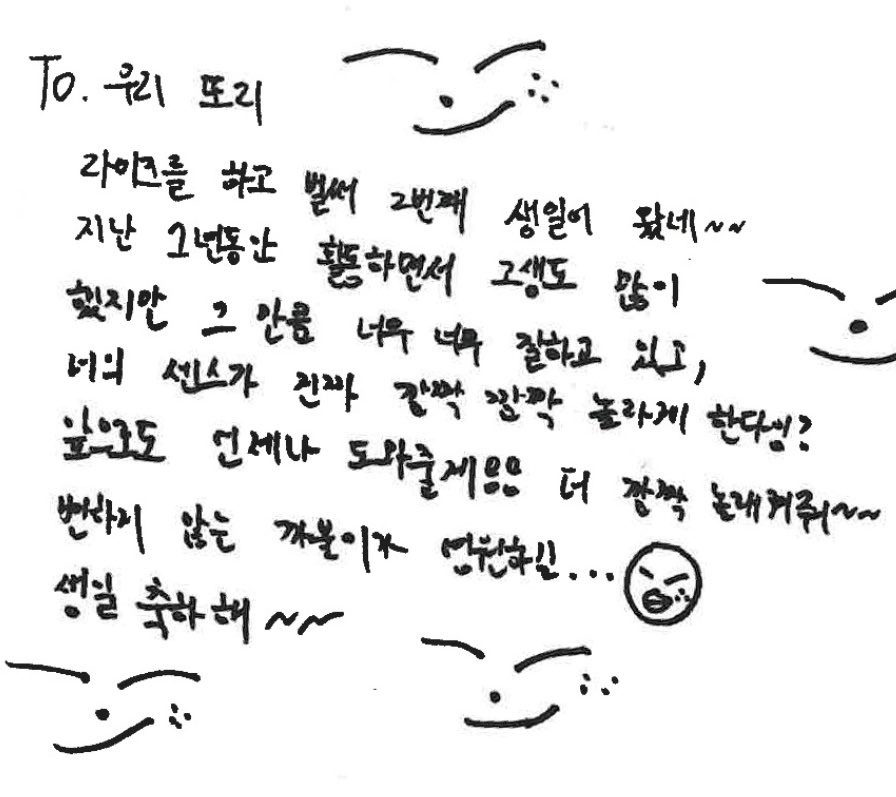 To. 우리 또리
라이즈를 하고 벌써 2번째 생일이 왔네~~
지난 1년동안 활동하면서 고생도 많이
했지만 그 만큼 너무 너무 잘하고 있고,
너의 센스가 진짜 깜짝 깜짝 놀라게 한다잉?
앞으로도 언제나 도와줄게용용 더 깜짝 놀래켜줘~~
변하지 않는 까불이가 영원하길...
생일 축하해~~